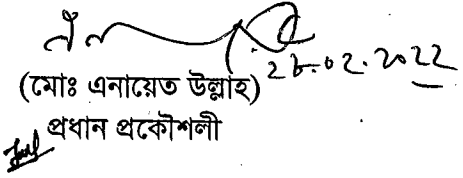 28.02.2022
(মোঃ এনায়েত উল্লাহ)
প্রধান প্রকৌশলী